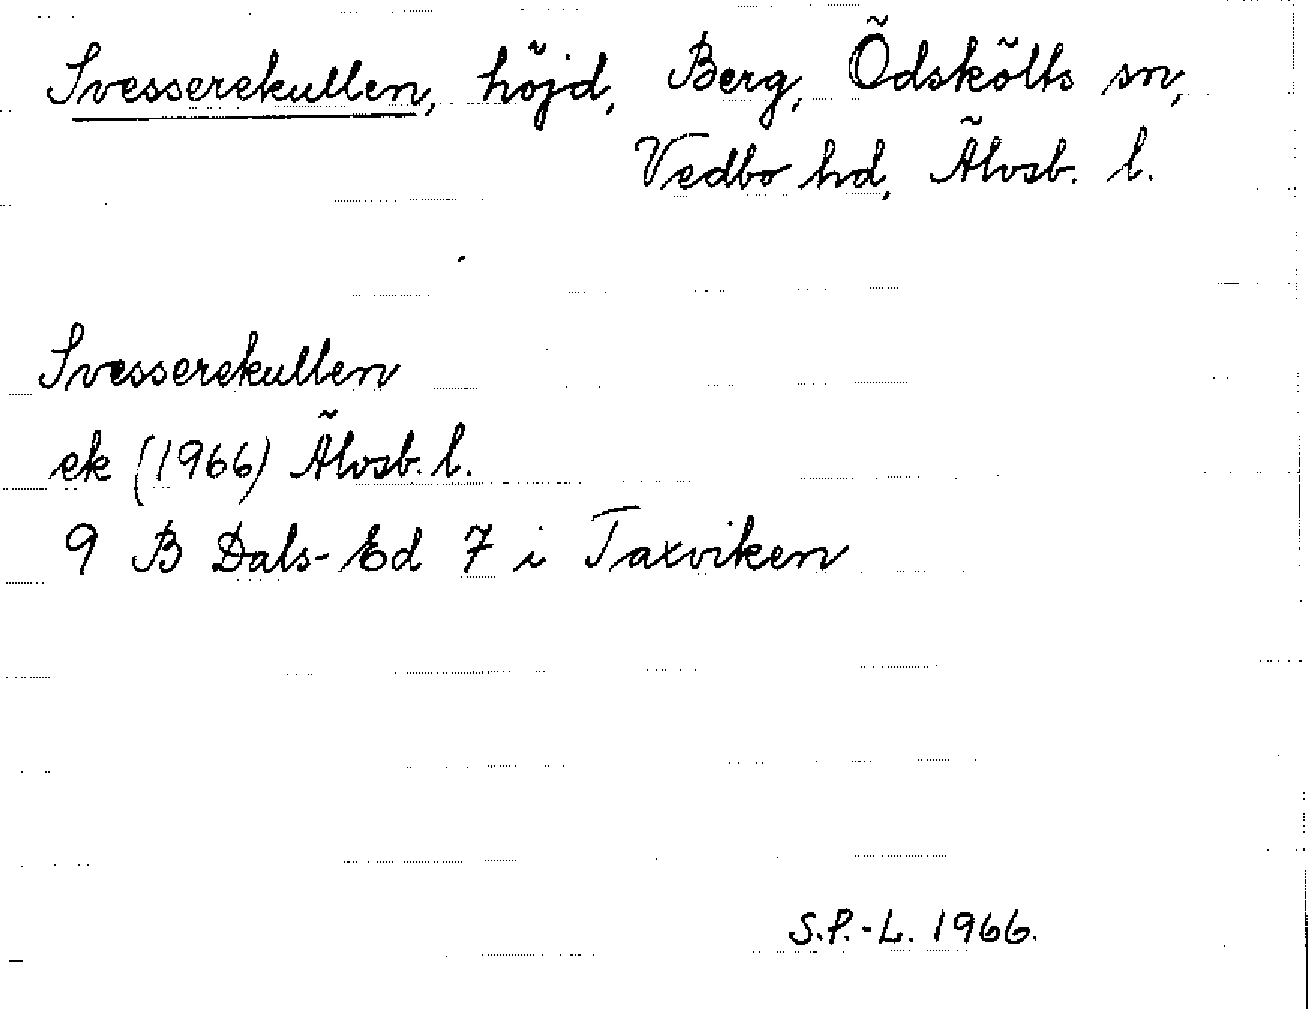 Svesserekullen, höjd, Berg, Ödskölts sn,
Vedbo hd, Älvsb. l.
Svesserekullen
ek (1966) Älvsb. l.
9 B Dals-Ed 7 i Taxviken
S.P.-L. 1966.